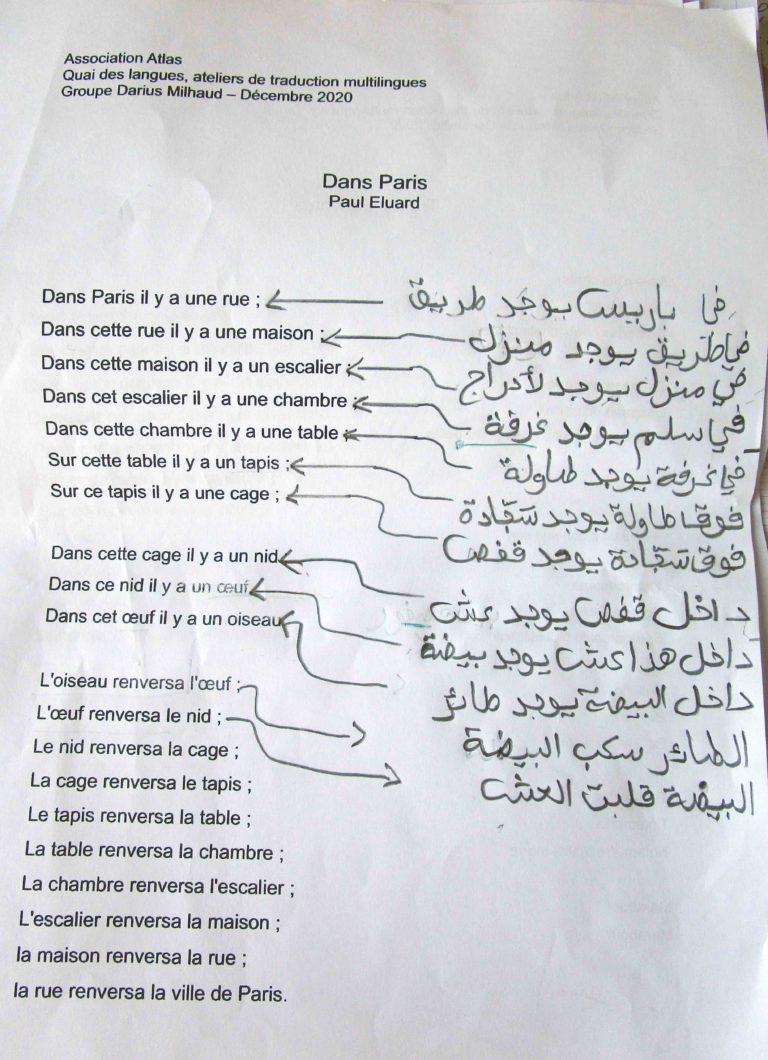 Association Atlas
Quai des langues, ateliers de traduction multilingues
Groupe Darius Milhaud – Décembre 2020
Dans Paris
Paul Eluard
Dans Paris il y a une rue ; في باريس يوجد طريق
Dans cette rue il y a une maison ; في طريق يوجد منزل
Dans cette maison il y a un escalier في منزل يوجد لأدراج
Dans cet escalier il y a une chambre في سلم يوجد غرفة
Dans cette chambre il y a une table في غرفة يوجد طاولة
Sur cette table il y a un tapis ; فوق طاولة يوجد سجادة
Sur ce tapis il y a une cage ; فوق سجادة يوجد قفص
Dans cette cage il y a un nid داخل قفص يوجد عش
Dans ce nid il y a un œuf داخل هذا عش يوجد بيضة
Dans cet œuf il y a un oiseau داخل البيضة يوجد طائر
L'oiseau renversa l'œuf ; الطائر سكب البيضة
L'œuf renversa le nid ; البيضة قلبت العش
Le nid renversa la cage ;
La cage renversa le tapis ;
Le tapis renversa la table ;
La table renversa la chambre ;
La chambre renversa l'escalier ;
L'escalier renversa la maison ;
la maison renversa la rue ;
la rue renversa la ville de Paris.